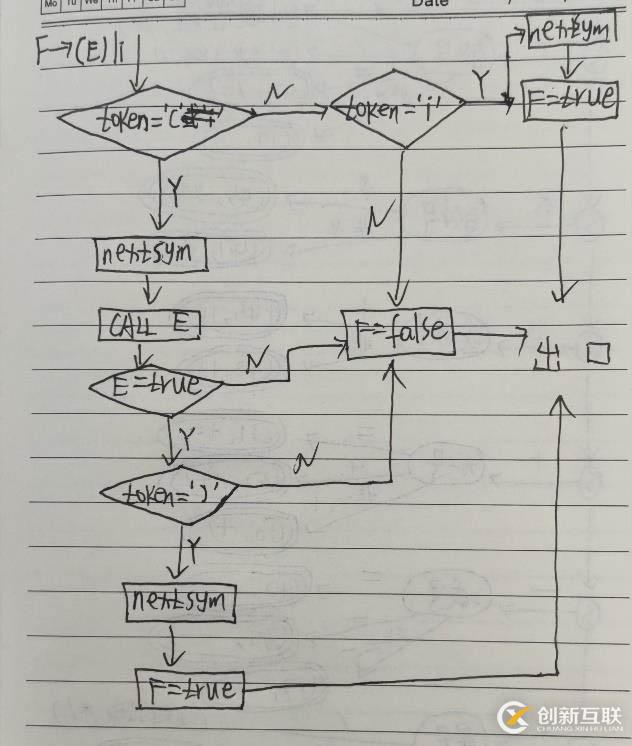 Mo Tu We Th Fr Sa Su
Date
F→(E)|i
nextsym
token='('
N
token='i'
Y
F=true
Y
N
nextsym
CALL E
F=false
出口
N
E=true
Y
N
token=')'
Y
nextsym
F=true
创新互联
CHUANG XIN HU LIAN